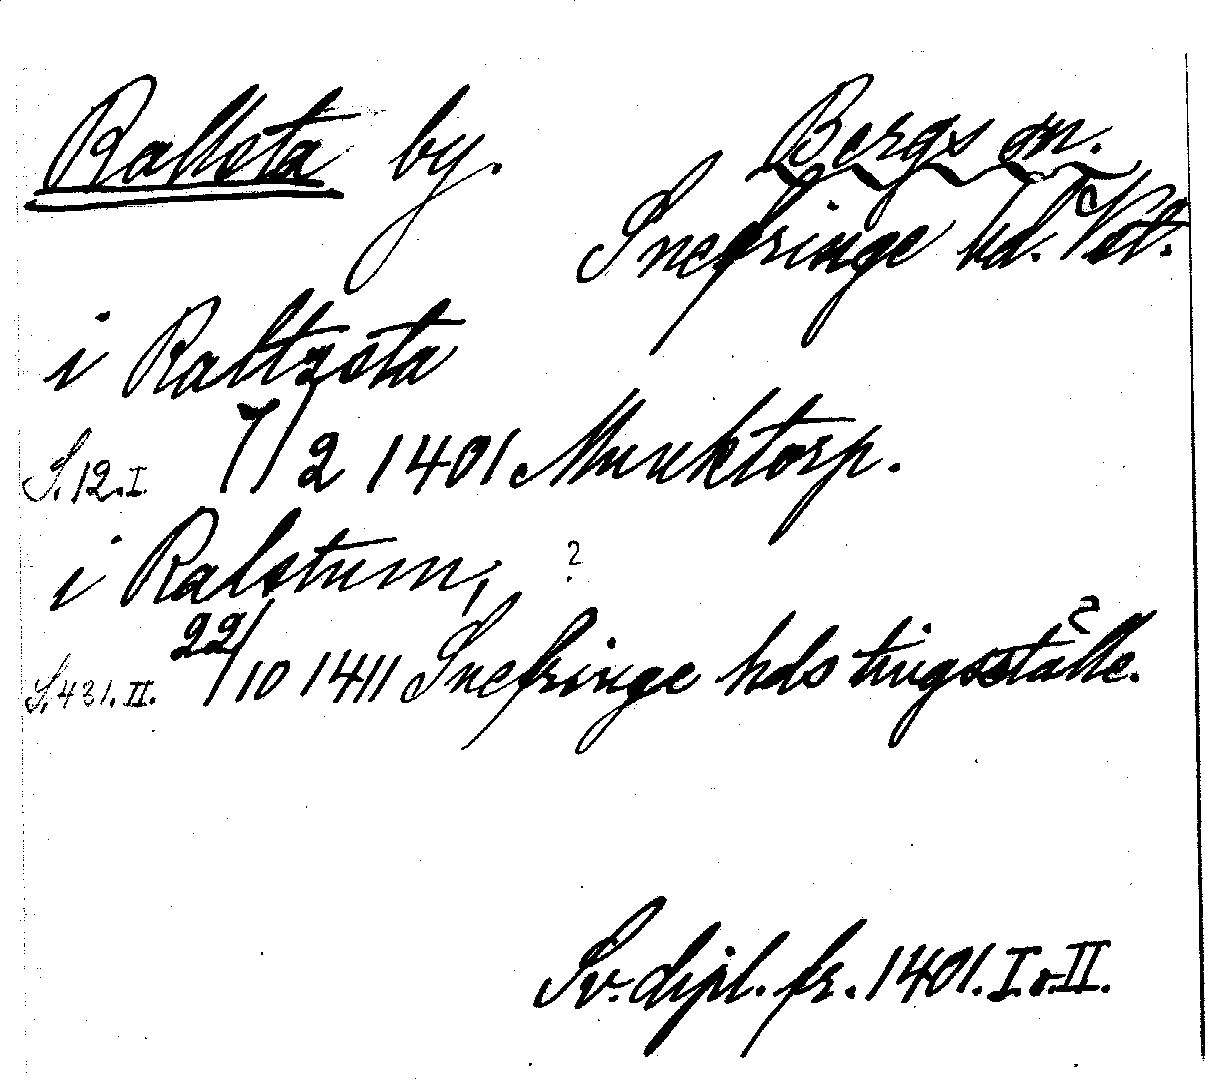 Rallsta by. Bergs sn.
Snefringe hd. Vstm.
i Raltzsta
S. 12. I 7/2 1401 Munktorp.
i Ralstum, ?
S. 431. II. 22/10 1411 Snefringe hds tingsställe.
Sv. dipl. fr. 1401. I. o. II.